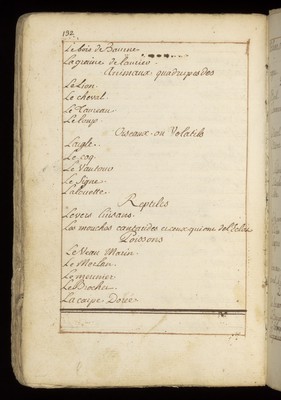 132
Le bois de Baume.
La graine de laurier.
Animaux quadrupedes
Le Lion.
Le cheval.
Le Taureau
Le loup.
Oiseaux ou Volatils
Laigle.
Le coq.
Le Vautour
Le Signe
Lalouette.
Reptiles
Le vers luisans.
Les mouches cantarides et ceux qui ont de l'eclat
Poissons
Le Veau Marin.
Le Merlan.
Le meunier
Le Brochet.
La carpe Dorée